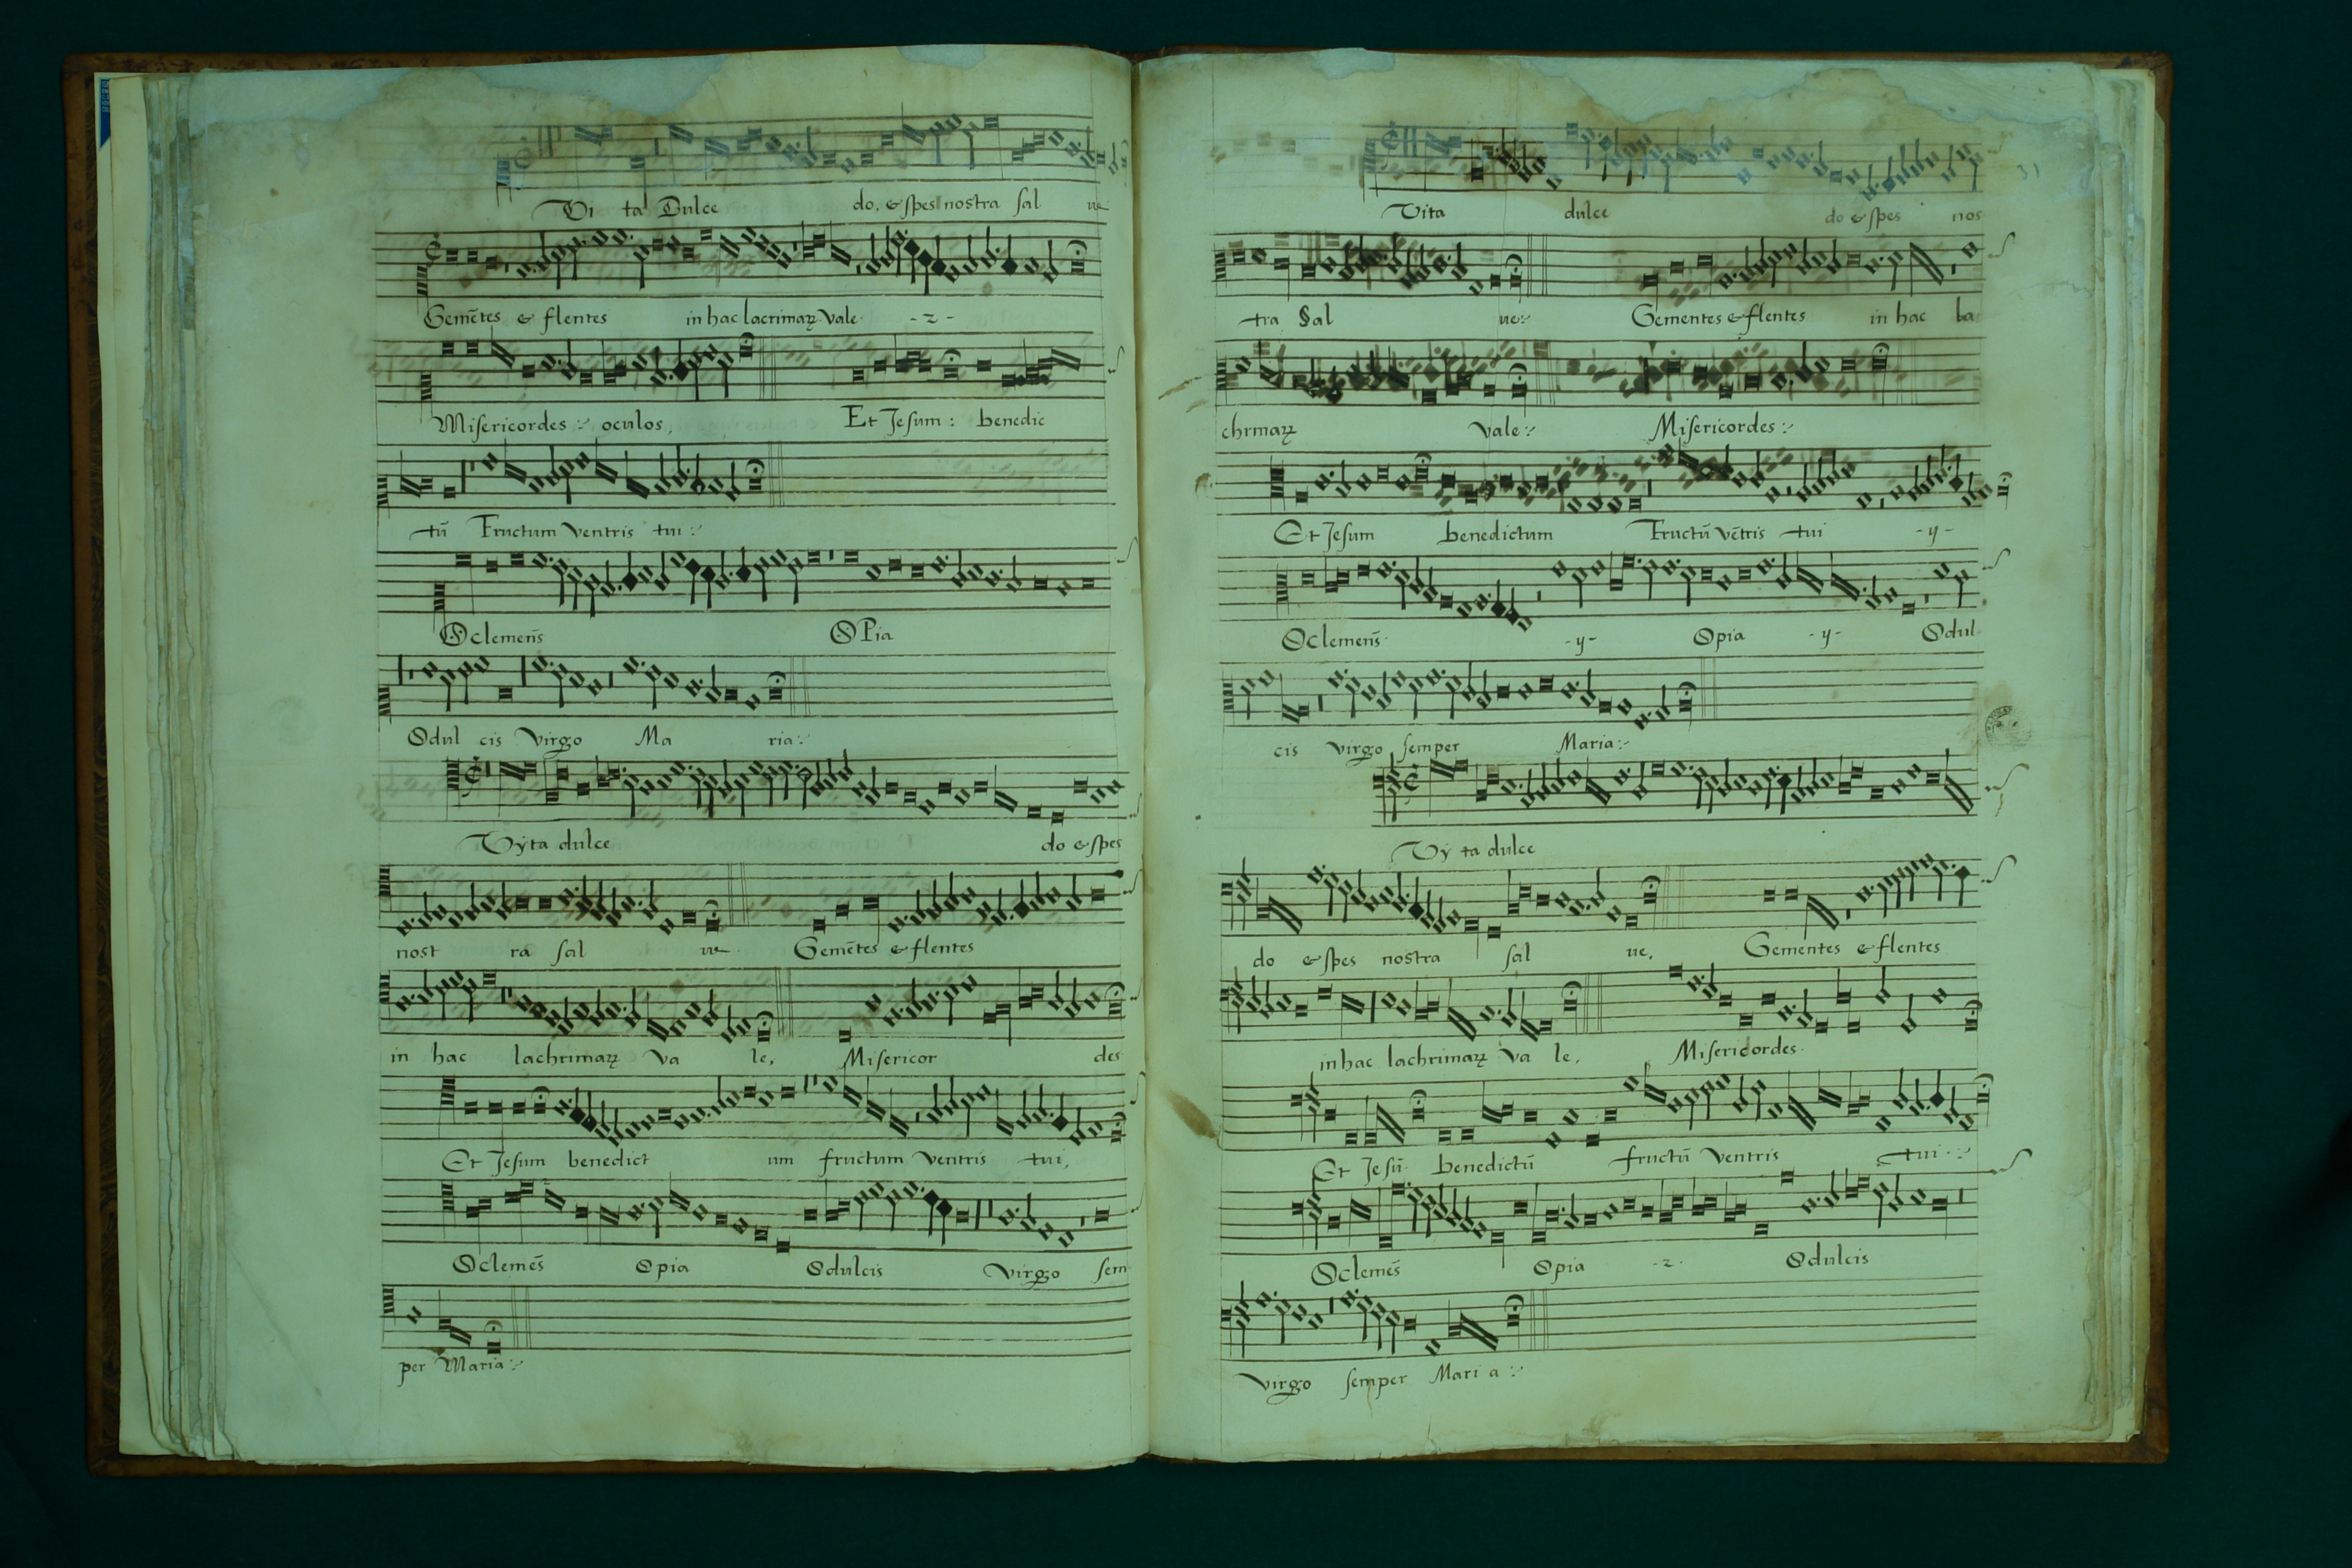 Vi ta Dulce do, & spes nostra sal ve
Gemētes & flentes in hac lacrimaꝝ. Vale - z -
Misericordes :· oculos, Et Jesum : benedic
tū Fructum ventris tui :·
O clemēns O Pia
O dul cis Virgo Ma ria :·
Vÿta dulce do & spes
nost ra sal ve Gemētes & flentes
in hac lachrimaꝝ va le, Misericor des
Et Jesum benedict um fructum ventris tui,
O clemēs O pia O dulcis Virgo sem
per Maria :·
31
Vita dulce do & spes nos
tra Sal ve :· Gementes & flentes in hac la
chrmaꝝ Vale :· Misericordes :·
Et Jesum benedictum Fructū vētris tui - y -
O clemēns - y - O pia - y - O dul
cis virgo semper Maria :·
Vÿ ta dulce
do & spes nostra sal ve, Gementes & flentes
in hac lachrimaꝝ va le, Misericordes
Et Jesū benedictū fructū ventris tui :·
O clemēs O pia - z - O dulcis
virgo semper Mari a :·